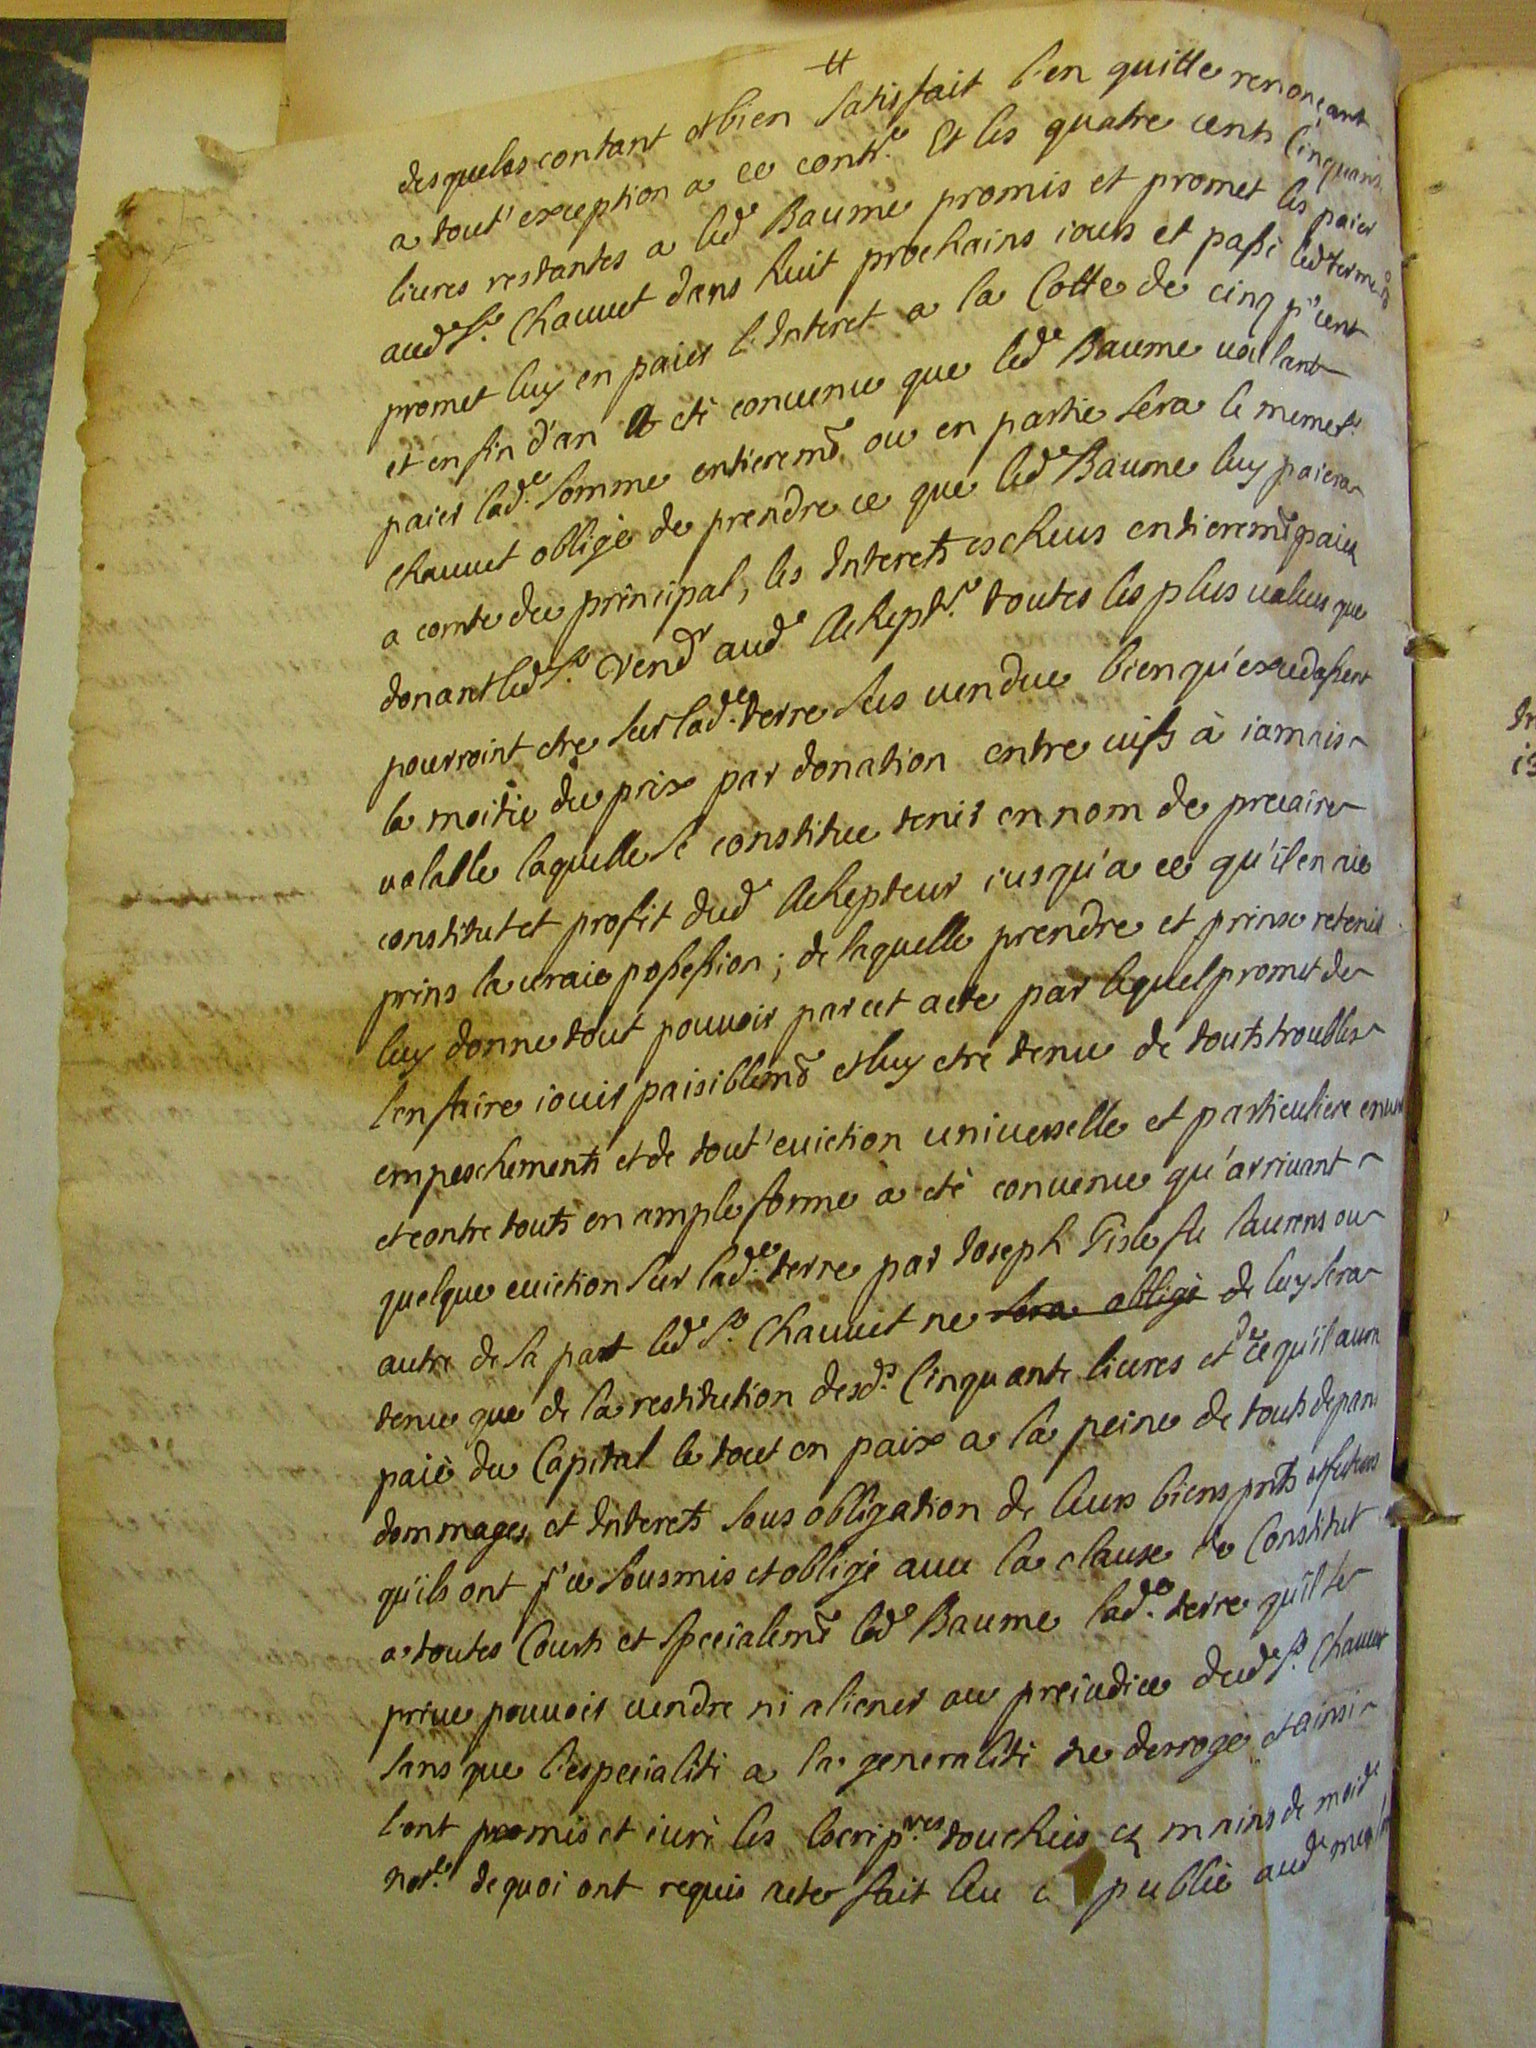 desqueles contant et bien satisfait l'en quitte renonçant
a tout' exception a ce contre. Et les quatre cents cinquante
liures restantes a led.e Baume promis et promet les paier
aud.e Sr. Chauuet dans huit prochains iours et passé led terme
promet luy en paier l'Interet a la Cotte de cinq p.r cent
et en fin d'an A eté conuenu que led.e Baume uoullant
paier lad.e somme entierem.t ou en partie sera le meme Sr.
Chauuet obligé de prendre ce que led.e Baume luy paiera
a comte du principal, les Interets escheus entierem.t paies
donant led.e Sr. Vend.r aud.e Achept.r toutes les plus ualues que
pourroint etre sur lad.e terre sus uendue bien qu'excedassent
la moitié du prix par donation entre uifs à iamais
ualable laquelle se constitue tenir en nom de precaire
constitut et profit dud.e Achepteur iusqu'a ce qu'il en aie
prins la uraie possession; de laquelle prendre et prinse retenir
luy donne tout pouuoir par cet acte par lequel promet de
l'en faire iouir paisiblem.t et luy etre tenu de touts troubles
empeschements et de tout' euiction uniuerselle et particuliere enuers
et contre touts en ample forme à eté conuenu qu'arriuant
quelque euiction sur lad.e terre par Joseph Gisle fu Laurens ou
autre de sa part led.e Sr. Chauuet ne sera obligé de luy sera
tenu que de la restitution desd.s Cinquante liures et de ce qu'il aura
paié du Capital le tout en paix a la peine de touts depans
dommages et Interets sous obligation de leurs biens pnts et futurs
qu'ils ont p.r ce sousmis et obligé auec la clause de Constitut
a toutes Cours et specialem.t led.e Baume lad.e terre qu'il se
priue pouuoir uendre ni aliener au preiudice dud.e Sr. Chauuet
sans que l'especialité a la generalité ne derroge et ainsi
l'ont promis et iuré les escrip.res touchées es mains de moid.e
not.re de quoi ont requis acte fait leu publié aud.e